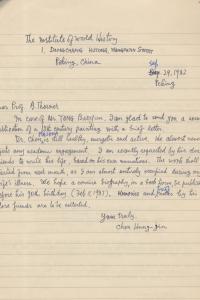 The Institute of World History
1, DONGCHANG HUTONG, WANGFUJIN STREET
Peking, China
Sep 29, 1982
Peking
Prof. B. Thorner
In case of Mr. YANG I am glad to send you a
publication of a century painting with a brief letter.
Dr. Chen is still healthy, energetic and active. He almost never
any academic engagement. I am recently expected by his close
friends to write his life, based on his own narrations. The work shall
started from next month, as I am almost entirely occupied during my
wife's illness. We hope a concise biography, in a book form, be published
before his 90th birthday (Feb 1987). by his
more funds are to be collected.
Yours truly,
Chen